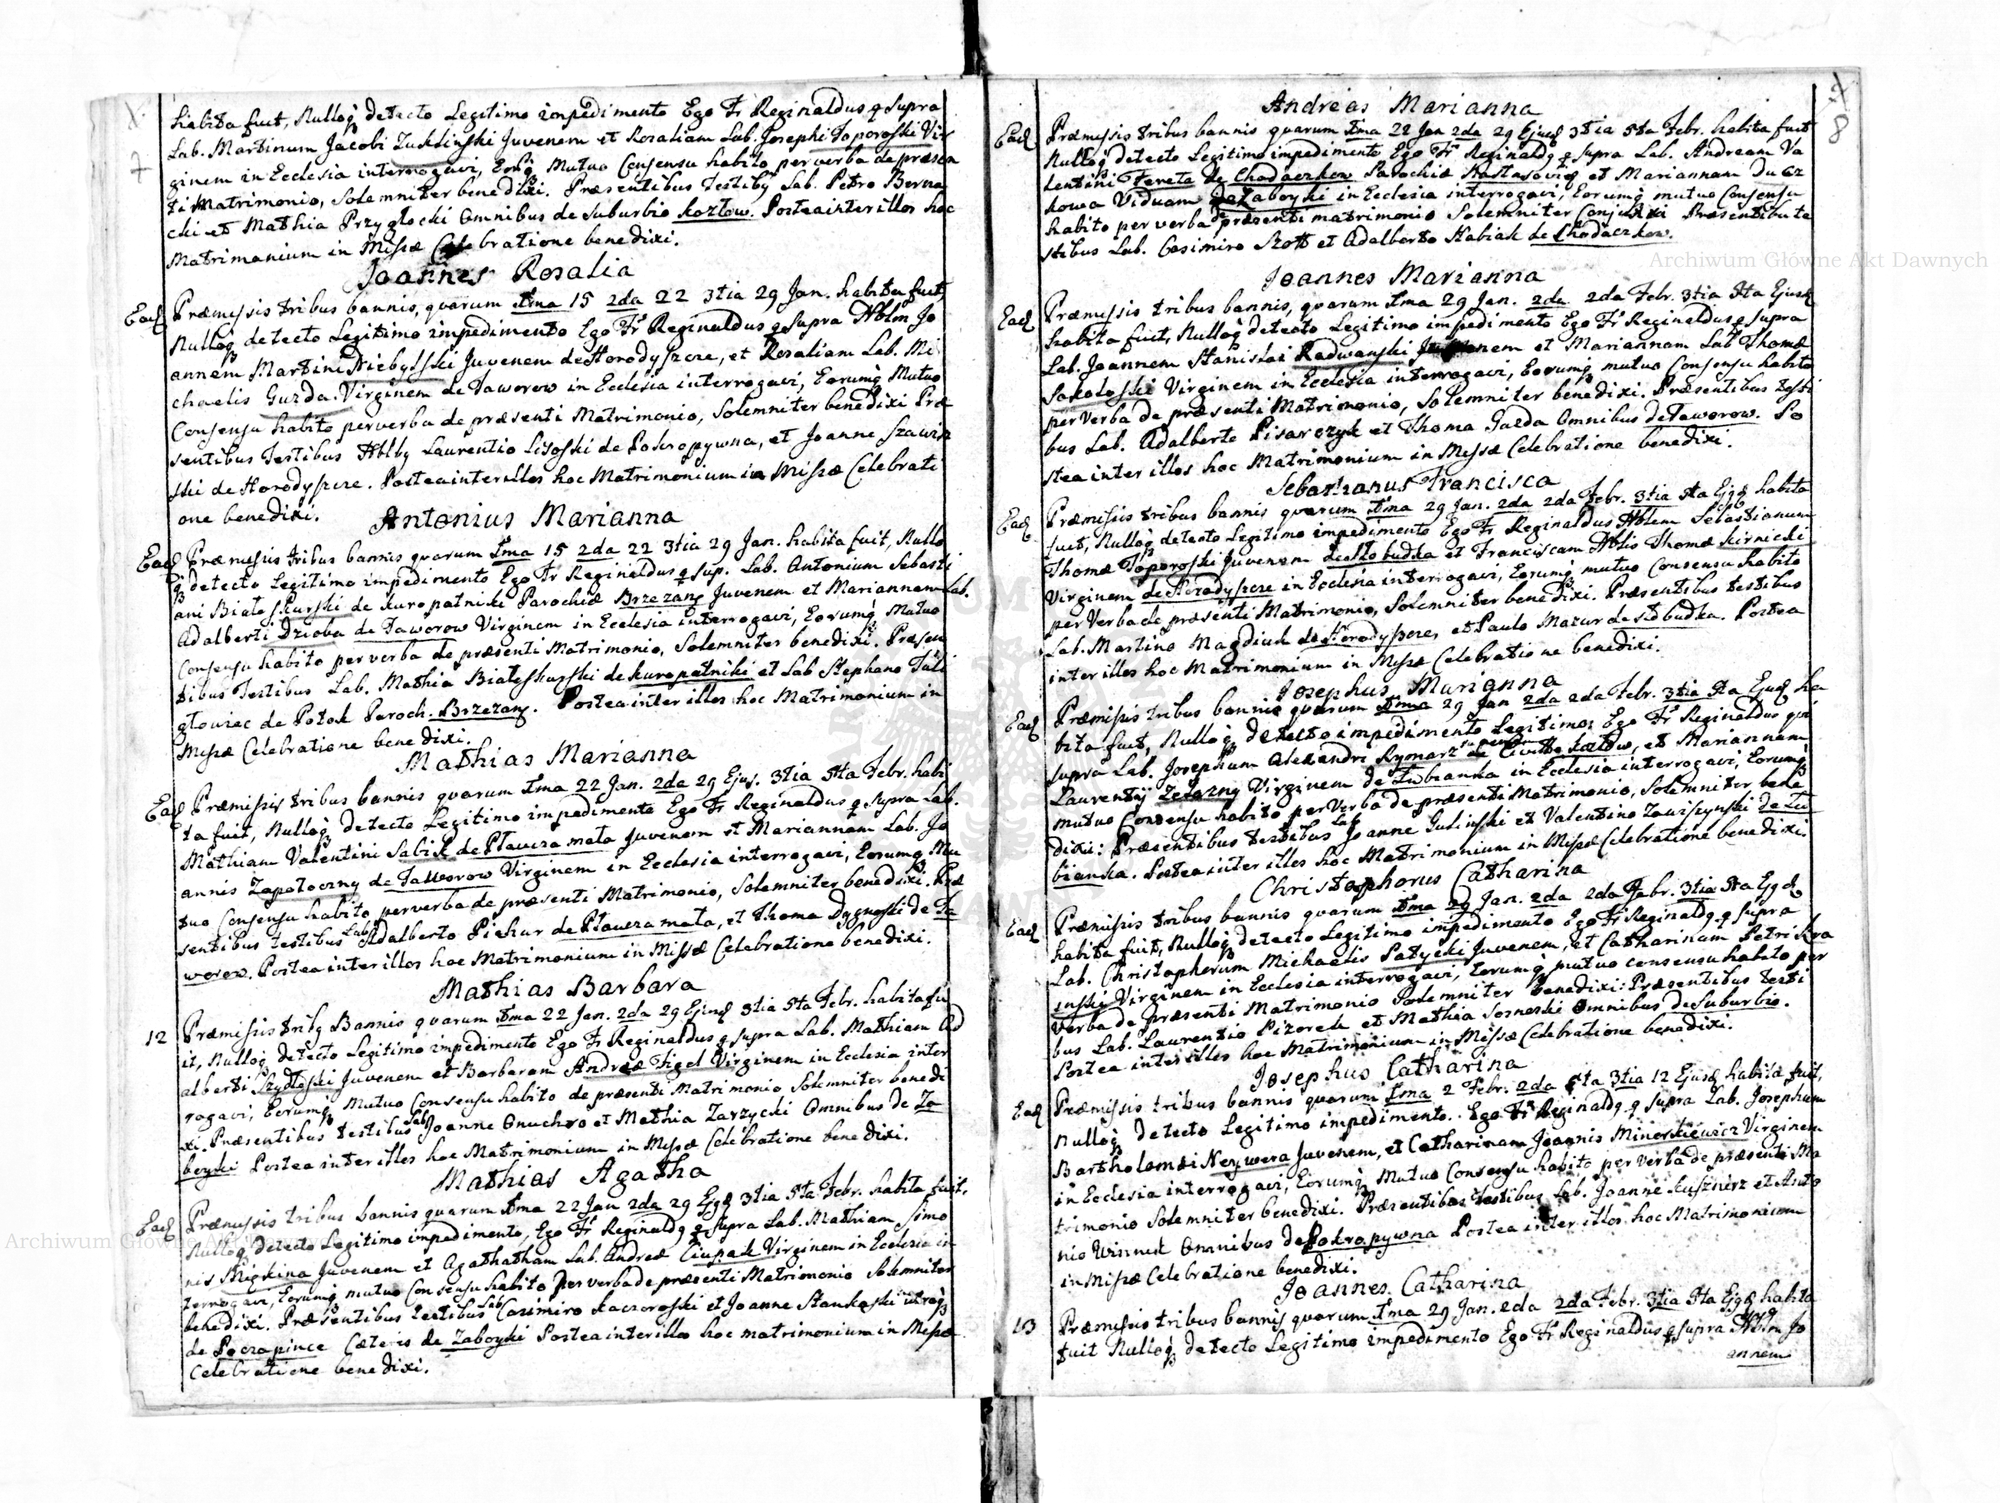 7
habita fuit, Nulloq detecto Legitimo impedimento Ego Fr Reginaldus q supra
Lab. Martinum Jacobi Juvenem et Rosaliam Lab. Josephi Toporoski Vir
ginem in Ecclesia interrogavi, Eorq Mutuo Consensu habito per verba de præsen
ti Matrimonio, Solemniter benedixi. Præsentibus Testibq Lab. Petro Berna
cki et Mathia Przyglocki Omnibus de Suburbio Kozlow. Postea inter illos hoc
Matrimonium in Missæ Celebratione benedixi.
Joannes Rosalia
Ead Præmissis tribus bannis, quarum Ima 15 2da 22 3tia 29 Jan. habita fuit,
Nulloq detecto Legitimo impedimento Ego Fr Reginaldus q supra Nblm Jo
annem Martini Niebylski Juvenem de Horodyszcze, et Rosaliam Lab. Mi
chaelis Guzda Virginem de Taworow in Ecclesia interrogavi, Eorumq Mutuo
Consensu habito per verba de præsenti Matrimonio, Solemniter benedixi Præ
sentibus Testibus Nblby Laurentio Lisoski de Pokropywna, et Joanne Szawin
ski de Horodyszcze. Postea inter illos hoc Matrimonium in Missæ Celebrati
one benedixi.
Antonius Marianna
Ead Præmissis tribus bannis quarum Ima 15 2da 22 3tia 29 Jan. habita fuit, Nullo
q detecto Legitimo impedimento Ego Fr Reginaldus q sup. Lab. Antonium Sebasti
ani Bialoskurski de Kuropatniki Parochiæ Brzezan Juvenem et Mariannam Lab.
Adalberti Dzioba de Taworow Virginem in Ecclesia interrogavi, Eorumq Mutuo
Consensu habito per verba de præsenti Matrimonio, Solemniter benedixi. Præsen
tibus Testibus Lab. Mathia Bialoskurski de Kuropatniki et Lab Stephano Tuli
glowiec de Potok Paroch. Brzezan. Postea inter illos hoc Matrimonium in
Missæ Celebratione benedixi.
Mathias Marianna
Ead Præmissis tribus bannis quarum Ima 22 Jan. 2da 29 Ejus. 3tia 5ta Febr. habi
ta fuit, Nulloq detecto Legitimo impedimento Ego Fr Reginaldus q supra Lab.
Mathiam Valentini Sabik de Plaucza mala Juvenem et Mariannam Lab. Jo
annis Zapotoczny de Taworow Virginem in Ecclesia interrogavi, Eorumq Mu
tuo Consensu habito per verba de præsenti Matrimonio, Solemniter benedixi. Præ
sentibus testibus Lab Adalberto Piekar de Plaucza mala, et Thoma Dygnoski de Ta
worow. Postea inter illos hoc Matrimonium in Missæ Celebratione benedixi.
Mathias Barbara
12 Præmissis tribq Bannis quarum Ima 22 Jan. 2da 29 Ejusd 3tia 5ta Febr. habita fu
it, Nulloq detecto Legitimo impedimento Ego Fr Reginaldus q supra Lab. Mathiam Ad
alberti Szydloski Juvenem et Barbaram Andreæ Figel Virginem in Ecclesia inter
rogavi, Eorumq Mutuo Consensu habito de præsenti Matrimonio Solemniter benedi
xi. Præsentibus testibus Lab Joanne Onuchro et Mathia Zarzycki Omnibus de Za
boyki Postea inter illos hoc Matrimonium in Missæ Celebratione benedixi.
Mathias Agatha
Ead Præmissis tribus bannis quarum Ima 22 Jan 2da 29 Ejqd 3tia 5ta Febr. habita fuit,
Nulloq detecto Legitimo impedimento, Ego Fr Reginaldq q supra Lab. Mathiam Simo
nis Juvenem et Agatham Lab. Andreæ Ciupak Virginem in Ecclesia in
terrogavi, Eorumq mutuo Consensu habito per verba de præsenti Matrimonio Solemniter
benedixi. Præsentibus testibus Lab Casimiro Kaczoroski et Joanne Stankoski
de Pocrapince Cæteris de Zaboyki Postea inter illos hoc matrimonium in Missæ
Celebratione benedixi.
8
Andreas Marianna
Ead Præmissis tribus bannis quarum Ima 22 Jan 2da 29 Ejusd 3tia 5ta Febr. habita fuit
Nulloq detecto Legitimo impedimento Ego Fr Reginaldq q supra Lab. Andream Va
lentini Fereta de Chodaczkow Parochiæ et Mariannam
kowa Viduam de Zaboyki in Ecclesia interrogavi, Eorumq mutuo Consensu
habito per verba de præsenti matrimonio Solemniter Conjunxi Præsentibu te
stibus Lab. Casimiro Szott et Adalberto Habiak de Chodaczkow.
Joannes Marianna
Ead Præmissis tribus bannis, quarum Ima 29 Jan. 2da 2da Febr. 3tia 5ta Ejusd
habita fuit, Nulloq detecto Legitimo impedimento Ego Fr Reginaldus q supra
Lab. Joannem Stanislai Radwanski Juvenem et Mariannam Lab Thomæ
Sokoloski Virginem in Ecclesia interrogavi, Eorumq mutuo Consensu habito
per Verba de præsenti Matrimonio, Solemniter benedixi. Præsentibus testi
bus Lab. Adalberto Pisarczyk et Thoma Guzda Omnibus de Taworow. Po
stea inter illos hoc Matrimonium in Missæ Celebratione benedixi.
Sebastianus Francisca
Ead Præmissis tribus bannis quarum Ima 29 Jan. 2da 2da Febr. 3tia 5ta Ejqd habita
fuit, Nulloq detecto Legitimo impedimento Ego Fr Reginaldus Nblem Sebastianum
Thomæ Toporoski Juvenem de Slobudka et Franciscam Nblis Thomæ Kirnicki
Virginem de Horodyszcze in Ecclesia interrogavi, Eorumq mutuo Consensu habito
per Verba de præsenti Matrimonio, Solemniter benedixi. Præsentibus testibus
Lab. Martino Magdiuk de Horodyszcze, et Paulo Mazur de Slobudka. Postea
inter illos hoc Matrimonium in Missæ Celebratione benedixi.
Josephus Marianna
Ead Præmissis tribus bannis quarum Ima 29 Jan 2da 2da Febr. 3tia 5ta Ejusd ha
bita fuit, Nulloq detecto impedimento Legitimo, Ego Fr Reginaldus qui
supra Lab. Josephum Alexandri Rymarz Juvenem de Civitte Kozlow, et Mariannam
Laurentij Zelazny Virginem de Lubianka in Ecclesia interrogavi, Eorumq
mutuo Consensu habito per Verba de præsenti Matrimonio, Solemniter bene
dixi: Præsentibus testibus Lab Joanne Gulinski et Valentino Zawiszynski de Lu
bianka. Postea inter illos hoc Matrimonium in Missæ Celebratione benedixi.
Christophorus Catharina
Ead Præmissis tribus bannis quarum Ima 29 Jan. 2da 2da Febr. 3tia 5ta Ejqd
habita fuit, Nulloq detecto Legitimo impedimento Ego Fr Reginaldq q supra
Lab. Christophorum Michaelis Patycki Juvenem, et Catharinam Petri Kra
inski Virginem in Ecclesia interrogavi, Eorumq mutuo consensu habito per
Verba de præsenti Matrimonio Solemniter benedixi: Præsentibus testi
bus Lab. Laurentio Pizorek et Mathia Sosnoski Omnibus de Suburbio.
Postea inter illos hoc Matrimonium in Missæ Celebratione benedixi.
Josephus Catharina
Ead Præmissis tribus bannis quarum Ima 2 Febr. 2da 5ta 3tia 12 Ejusd habita fuit,
Nulloq detecto Legitimo impedimento. Ego Fr Reginaldq q supra Lab. Josephum
Bartholomæi Neywera Juvenem, et Catharinam Joannis Minorkiewicz Virginem
in Ecclesia interrogavi, Eorumq Mutuo Consensu habito per verba de præsenti Ma
trimonio Solemniter benedixi. Præsentibus testibus Lab. Joanne Kusznierz et Anto
nio Winnik Omnibus de Pokrapywna Postea inter illos hoc Matrimonium
in Missæ Celebratione benedixi.
Joannes Catharina
13 Præmissis tribus bannis quarum Ima 29 Jan. 2da 2da Febr. 3tia 5ta Ejqd habita
fuit Nulloq detecto Legitimo impedimento Ego Fr Reginaldus q supra Nblm Jo
annem
Archiwum Główne Akt Dawnych
Archiwum Główne Akt Dawnych